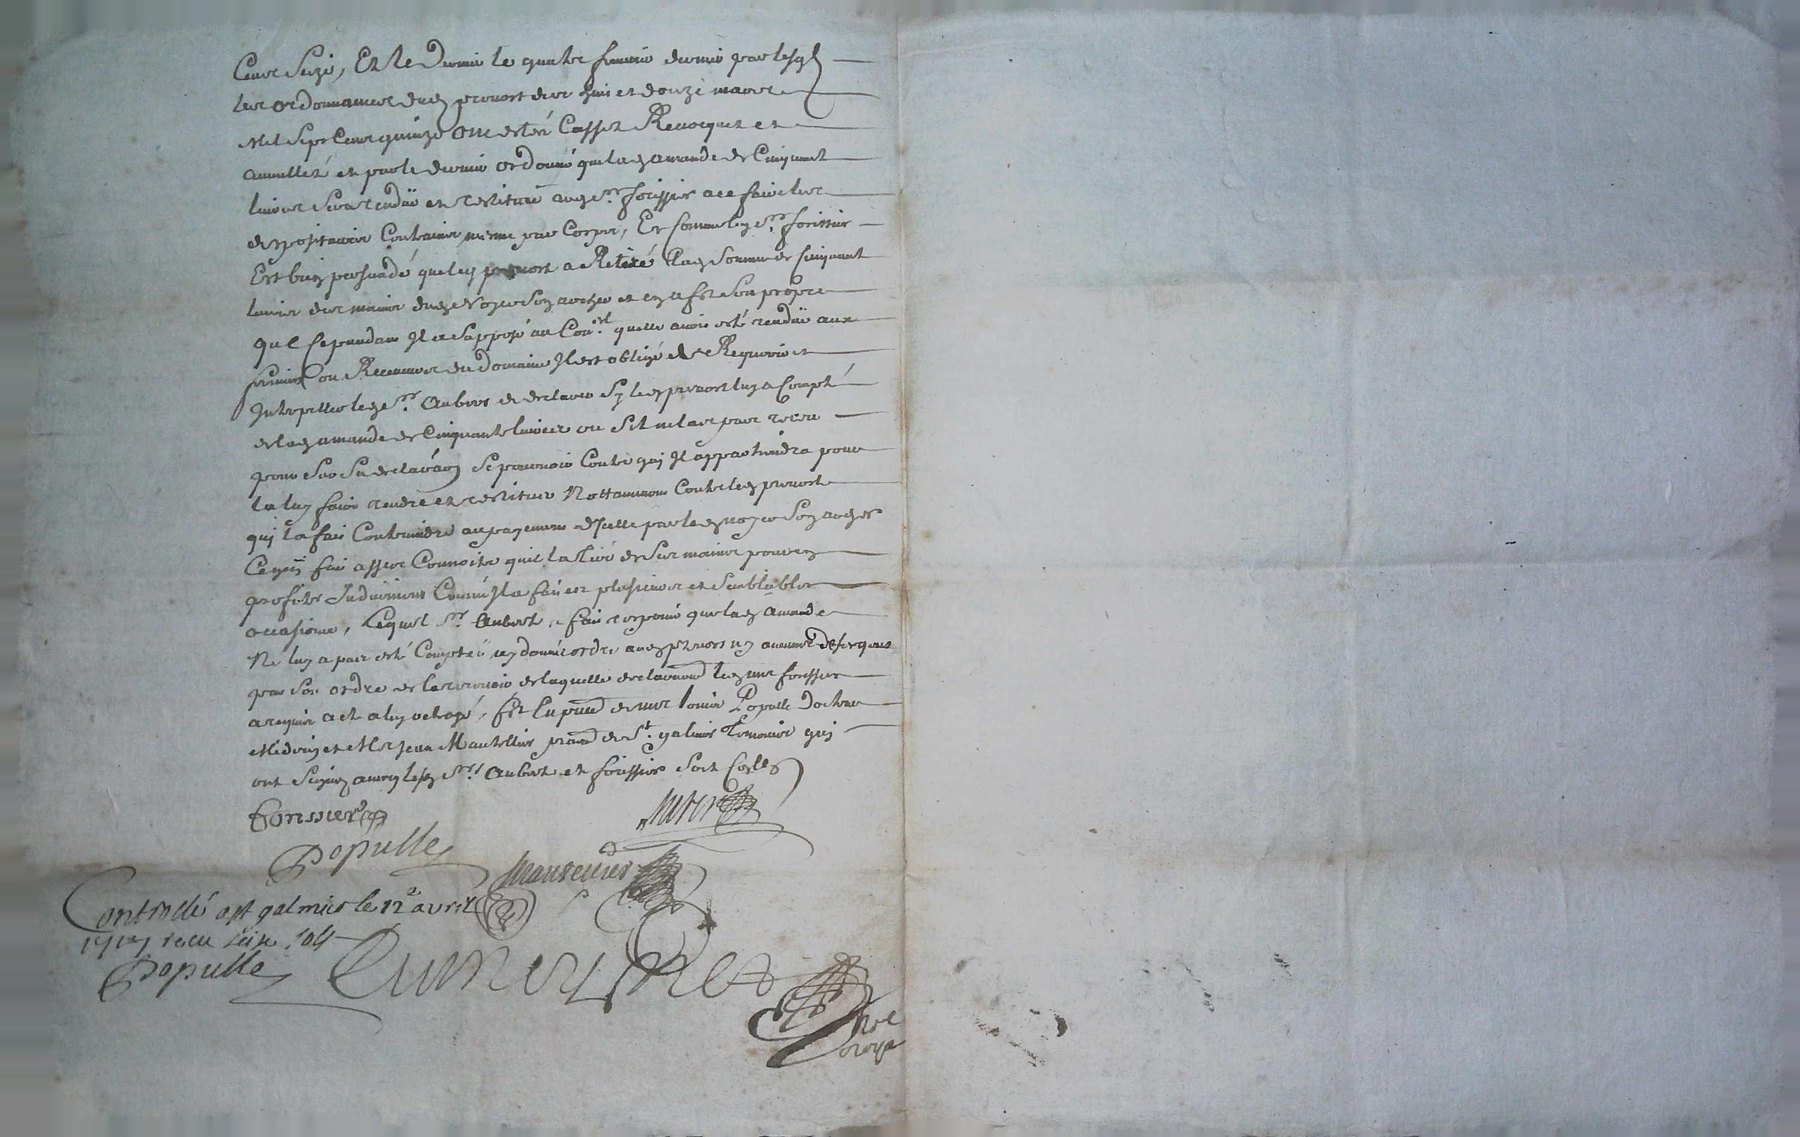 Cens Seize, Et le Dernier le quatre feuvrier dernier par lesql
les ordonnances dud prevost des huit et douze mars
Mil Sept Cens quinze ont estéz Cassez Revocquez et
annullez et par le dernier ordonné que lad amande de Cinquant
livres sera rendüe et restituée aud Sr. forissier a ce faire les
depositaires Contraints mesme par Corps, Et Comme led Sr. forissier
Est bien persuadé que led prevost a Retiré lad Somme de Cinquant
livres des mains dud Noyer Son archer et en a fet Son propre
que Cependant Il a Supposé au Conel. quelle avoit esté rendüe aux
fermiers ou Receveurs du Domaine Il est obligé de Requerir et
Interpeller led Sr. Aubert de declarer Sy led prevost luy a Compté
de lad amande de Cinquante livres ou Sil ne la pas receu
pour Sur Sa declaraon Se pourvoir Contre quy Il appartiendra pour
la luy faire rendre et restituer Nottamment Contre led prevost
quy la fait Contraindre au payement dIcelle par led noyer Son archer
Ce quy fait assez Connoitre quil la Tiré de Ses mains pour en
profiter Indüement Comme Il a fait en plusieurs et Semblables
occasions, Lequel Sr. Aubert a fait reponse que lad Amande
Ne luy a pas esté Comptée ny donné ordre aud prevost ny
par Son ordre de la recevoir de laquelle declaraon led sieur forissier
a requis acte a luy octroyé, fet En pnce de sieur Louis Populle Docteur
Medecin et Mre Jean Mautellier praen de St. galmier Temoins quy
ont Signez avec lesd Srs Aubert et forissier Soit Conlle
Forissier
Aubert
Populle
Mautellier
Controllé a st galmier le 12e avril
1717 receu
Populle
nore
royal